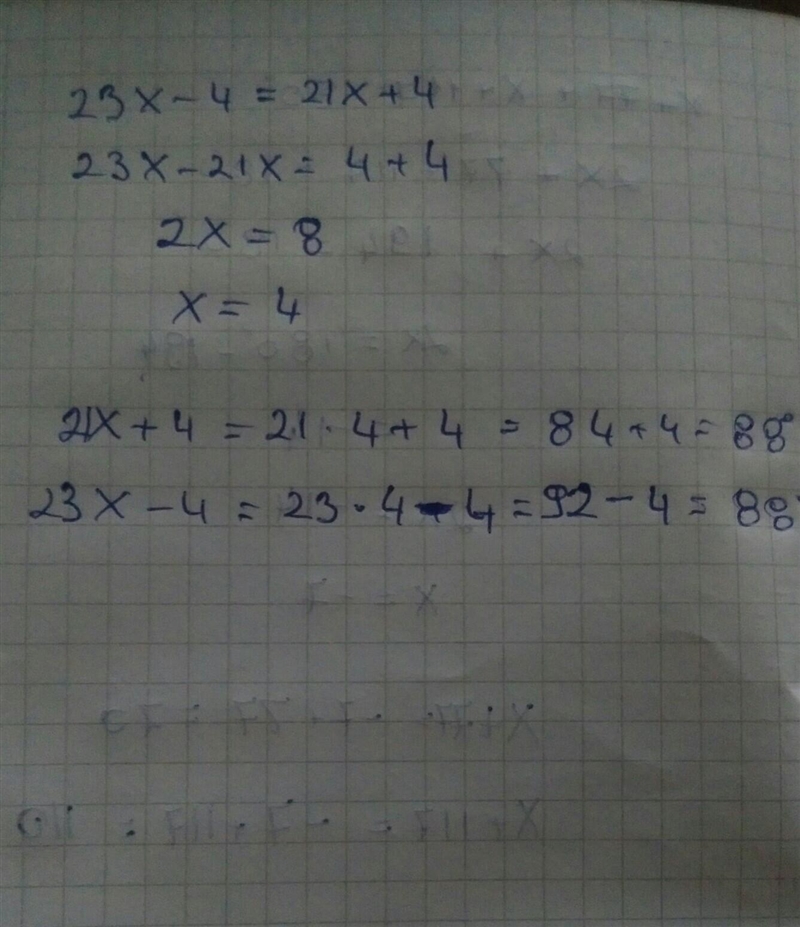 23x - 4 = 21x + 4
23x - 21x = 4 + 4
2x = 8
x = 4
21x + 4 = 21 · 4 + 4 = 84 + 4 = 88
23x - 4 = 23 · 4 - 4 = 92 - 4 = 88